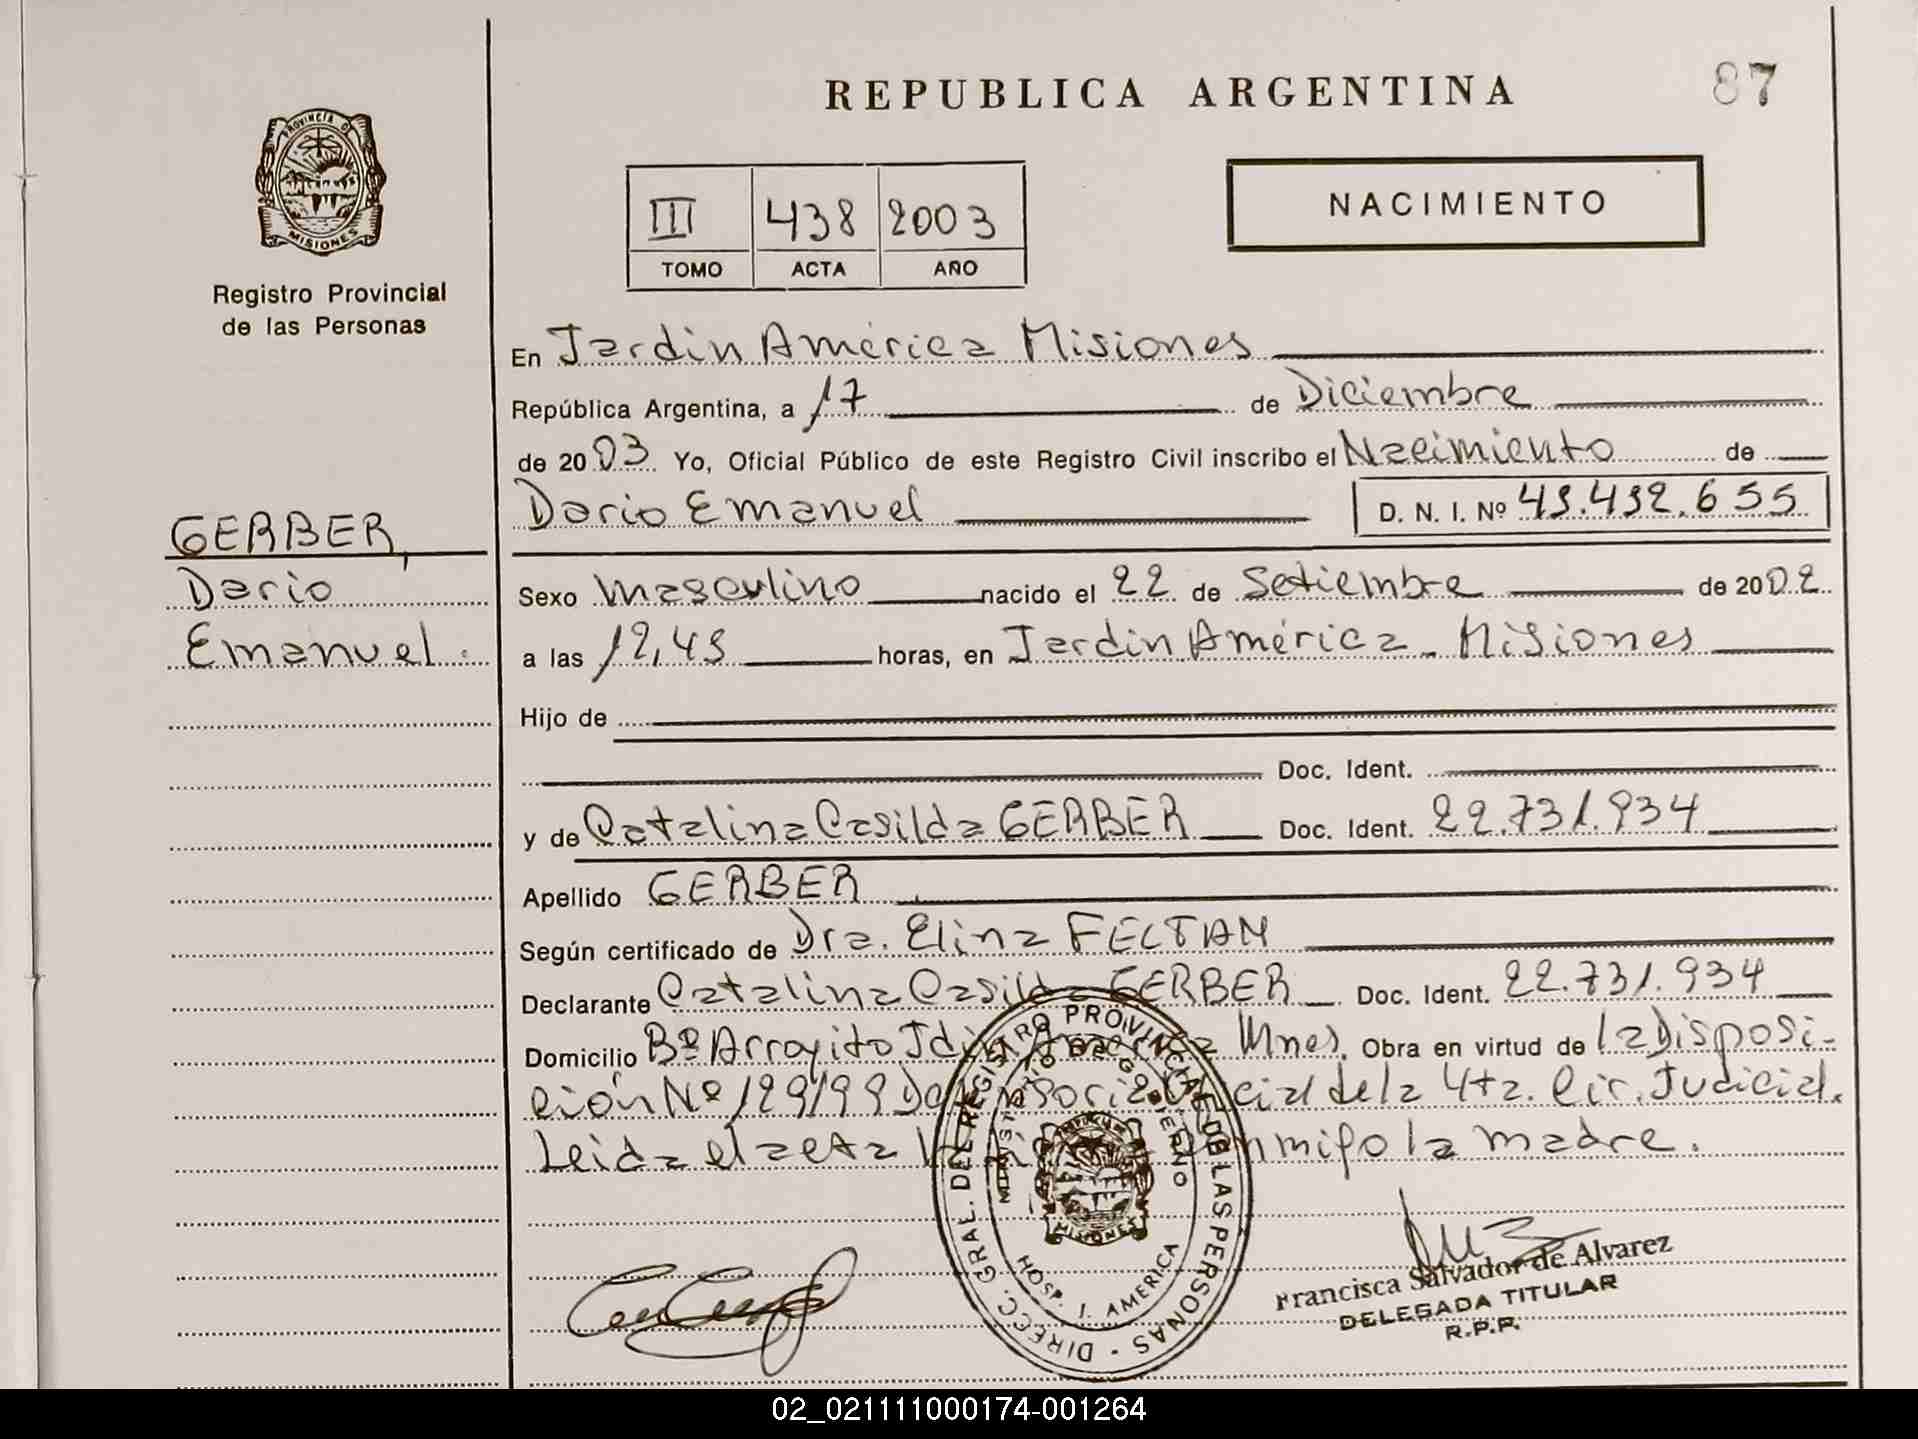 REPUBLICA ARGENTINA
87
PROVINCIA DE
MISIONES
Registro Provincial
de las Personas
III 438 2003
TOMO ACTA AÑO
NACIMIENTO
En Jardin América Misiones
República Argentina, a 17 de Diciembre
de 2003 Yo, Oficial Público de este Registro Civil inscribo el Nacimiento de
Dario Emanuel
D. N. I. Nº
GERBER,
Dario
Emanuel.
Sexo Masculino nacido el 22 de Setiembre de 2002
a las horas, en Jardin América Misiones
Hijo de
Doc. Ident.
y de Catalina Casilda GERBER Doc. Ident. 22.731.934
Apellido GERBER
Según certificado de Dra. Elina
Declarante Catalina Casilda GERBER Doc. Ident. 22.731.934
Domicilio Bº Arroyito Jdin América Mnes. Obra en virtud de la Disposi-
ción Nº 129/99 de la 4ta. Cir. Judicial.
Leida el acta conmigo la madre.
DIRECC. GRAL. DEL REGISTRO PROVINCIAL DE LAS PERSONAS
MINISTERIO DE GOBIERNO
MISIONES
HOSP. J. AMERICA
Francisca Salvador de Alvarez
DELEGADA TITULAR
R.P.P.
02_021111000174-001264